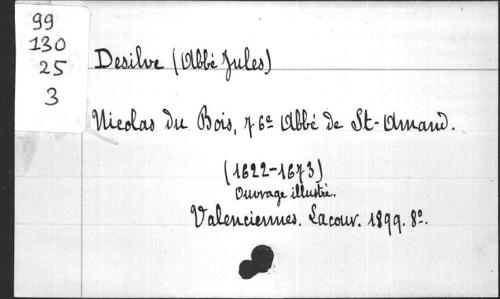 99
130
25
3
Desilve (Abbé Jules)
Nicolas du Bois, 76e Abbé de St-Amand.
(1622-1673)
Ouvrage illustré.
Valenciennes. Lacour. 1899. 8o.